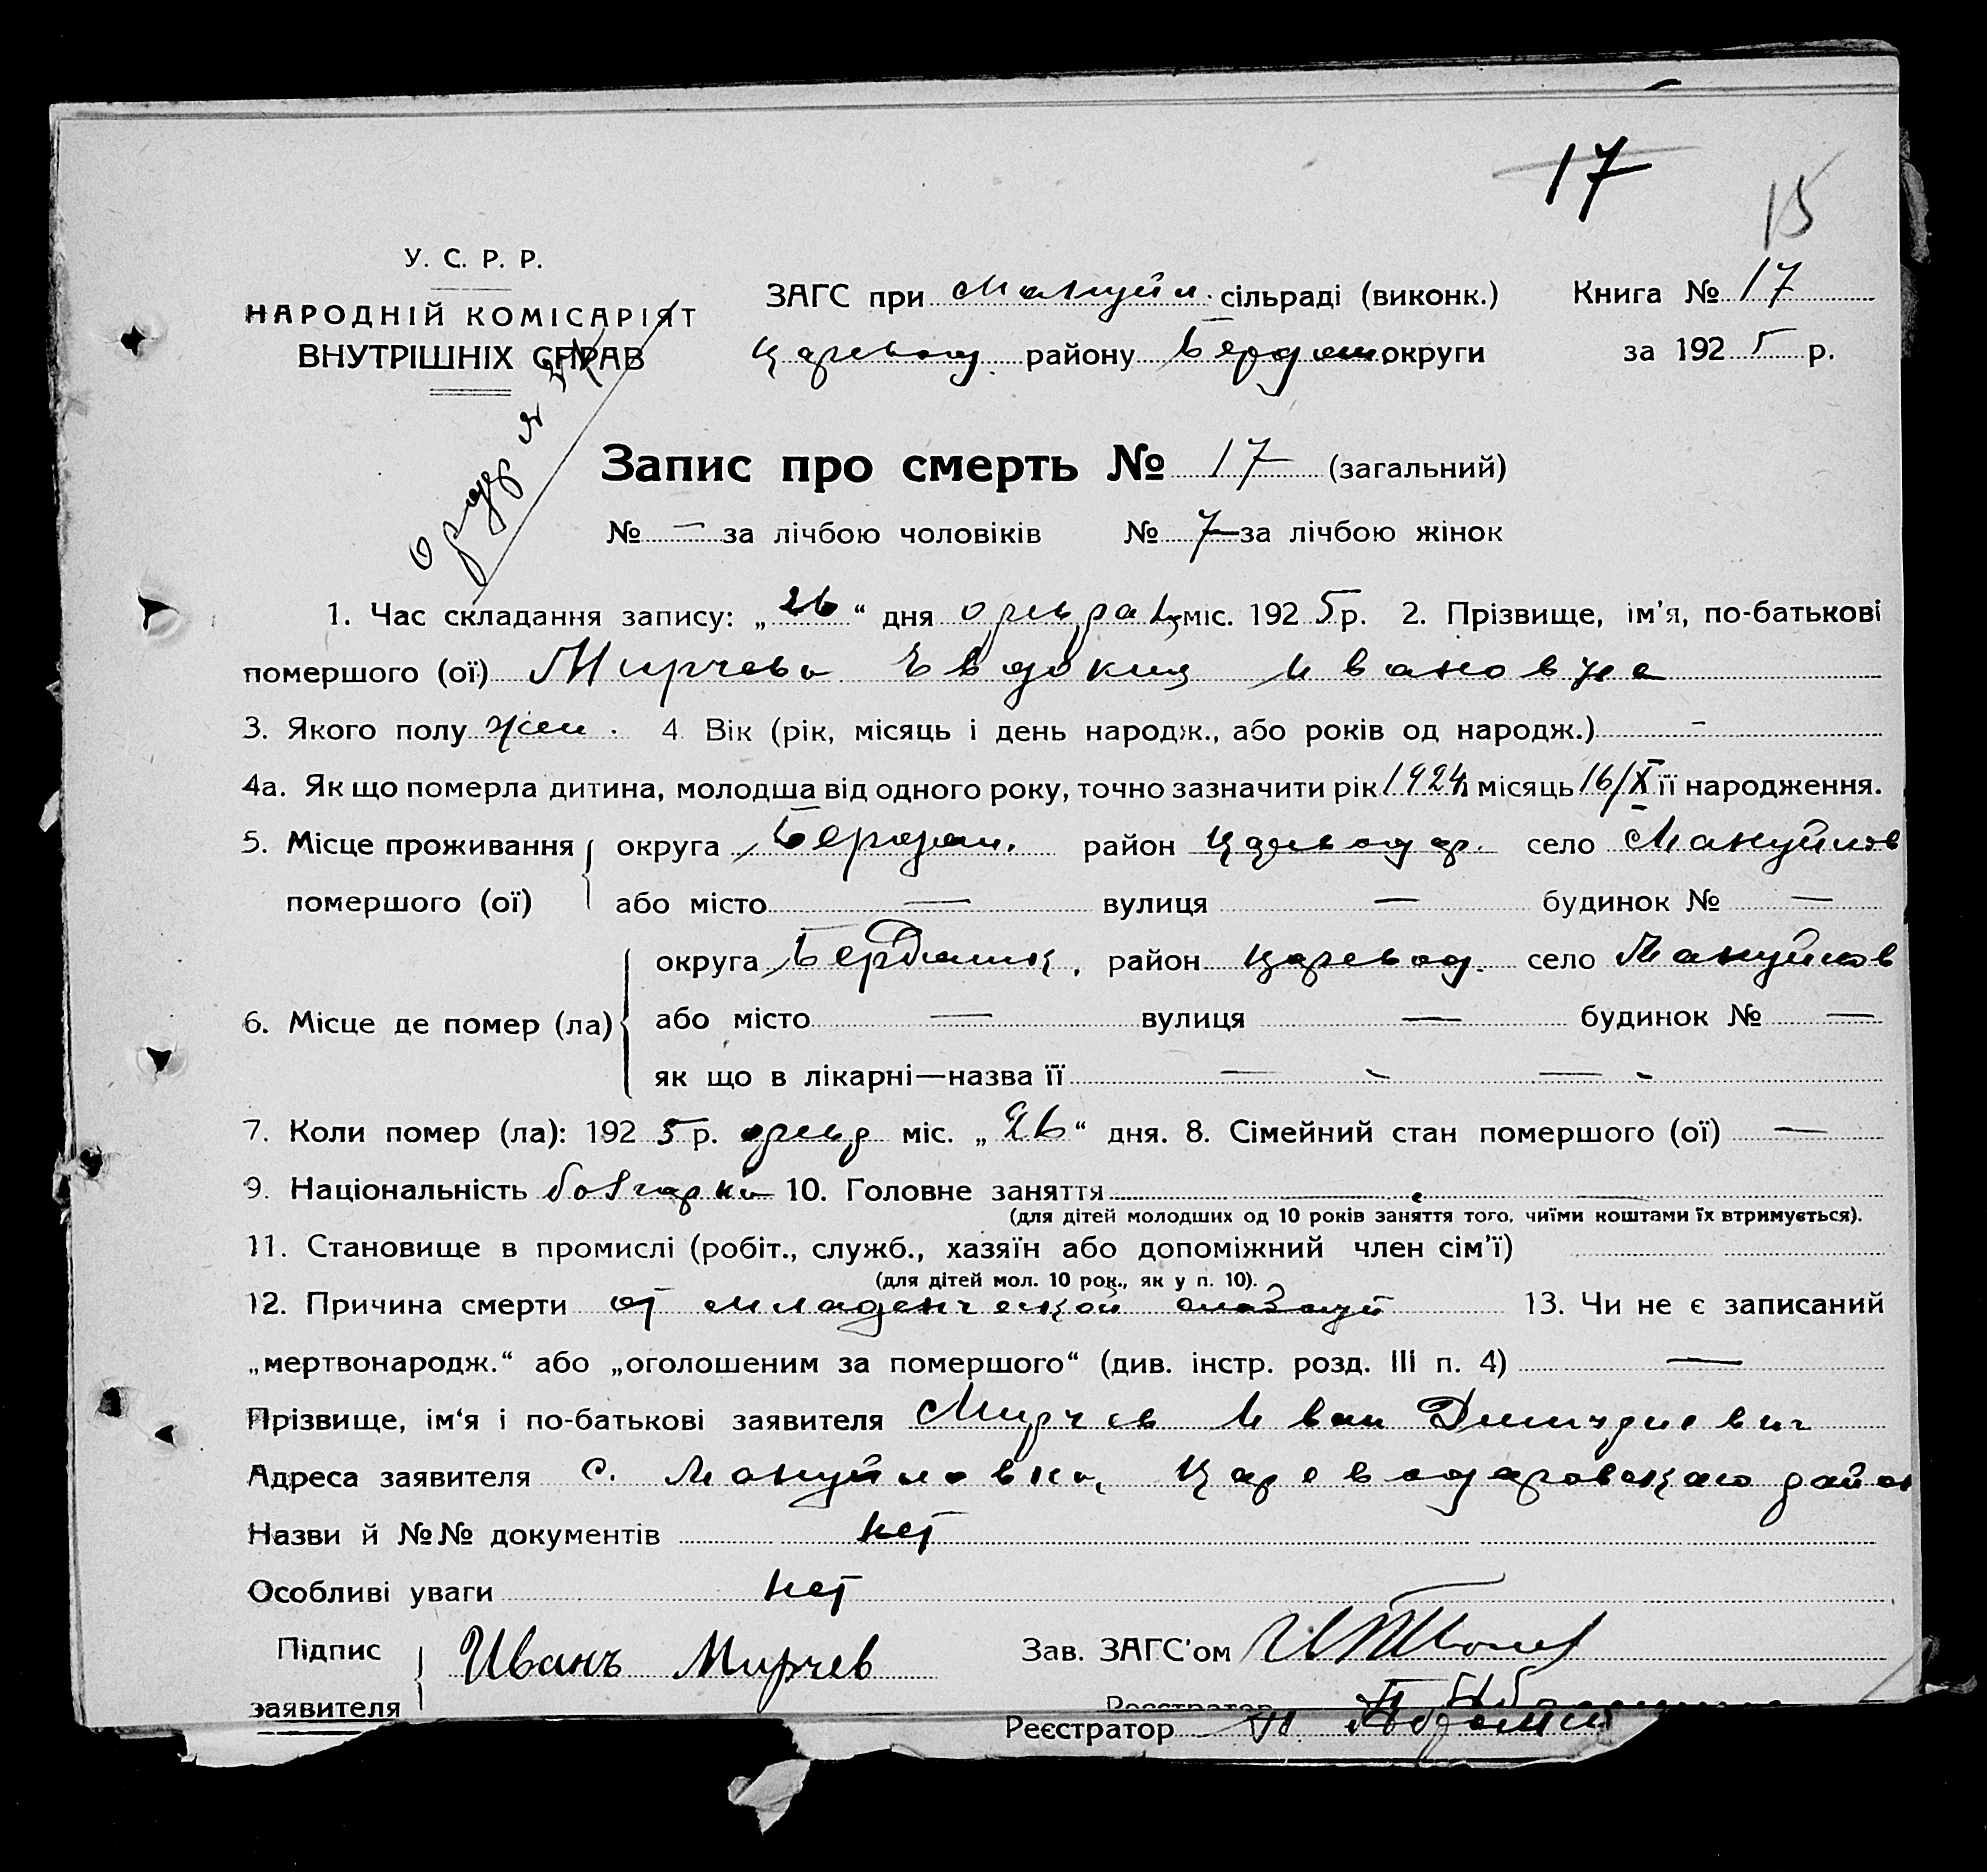 17
15
У. С. Р. Р.
НАРОДНІЙ КОМІСАРІЯТ
ВНУТРІШНІХ СПРАВ
ЗАГС при Мануйл. сільраді (виконк.) Книга № 17
Царевод. району Бердян округи за 1925 р.
Запис про смерть № 17 (загальний)
№ — за лічбою чоловіків № 7 за лічбою жінок
1. Час складання запису: „26“ дня февраля міс. 1925 р. 2. Прізвище, ім'я, по-батькові
помершого (ої) Мирчева Евдокия Ивановна
3. Якого полу жен. 4. Вік (рік, місяць і день народж., або років од народж.) —
4а. Як що померла дитина, молодша від одного року, точно зазначити рік 1924 і місяць 16/X її народження.
5. Місце проживання округа Бердян. район Цареводар. село Мануйлов
помершого (ої) або місто — вулиця — будинок № —
округа Бердянск, район Царевод. село Мануйлов
6. Місце де помер (ла) або місто — вулиця — будинок № —
як що в лікарні—назва її — —
7. Коли помер (ла): 1925 р. февр міс. „26“ дня. 8. Сімейний стан помершого (ої) —
9. Національність болгарка 10. Головне заняття —
(для дітей молодших од 10 років заняття того, чиїми коштами їх втримується).
11. Становище в промислі (робіт., служб., хазяїн або допоміжний член сім'ї)
(для дітей мол. 10 рок., як у п. 10).
12. Причина смерти от младенческой 13. Чи не є записаний
„мертвонародж.“ або „оголошеним за помершого“ (див. інстр. розд. III п. 4) —
Прізвище, ім'я і по-батькові заявителя Мирчев Иван Димитриевич
Адреса заявителя с. Мануйловка, Цареводаровского район
Назви й №№ документів нет
Особливі уваги нет
Підпис Иванъ Мирчев Зав. ЗАГС'ом
заявителя Реєстратор
Реєстратор